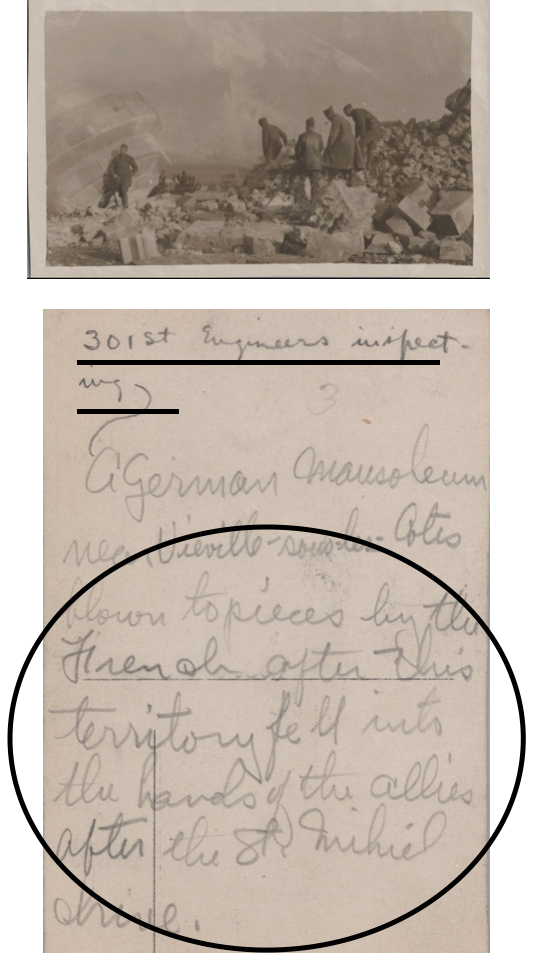 301st Engineers inspect-
ing
3
A German Mausoleum
near Vieville-sous-les-Cotes
blown to pieces by the
French after this
territory fell into
the hands of the allies
after the St. Mihiel
drive.